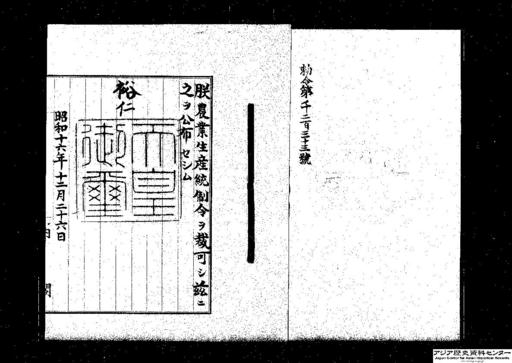 勅令第千二百三十三號
朕農業生産統制令ヲ裁可シ茲ニ
之ヲ公布セシム
裕仁
天皇御璽
昭和十六年十二月二十六日
内閣
アジア歴史資料センター
Japan Center for Asian Historical Records